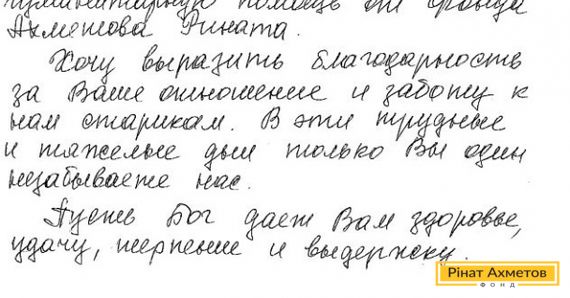 гуманитарную помощь от фонда
Ахметова Рината.
Хочу выразить благодарность
за Ваше отношение и заботу к
нам старикам. В эти трудные
и тяжелые дни только Вы один
незабываете нас.
Пусть Бог дает Вам здоровье,
удачу, терпение и выдержку.
Рінат Ахметов
ФОНД